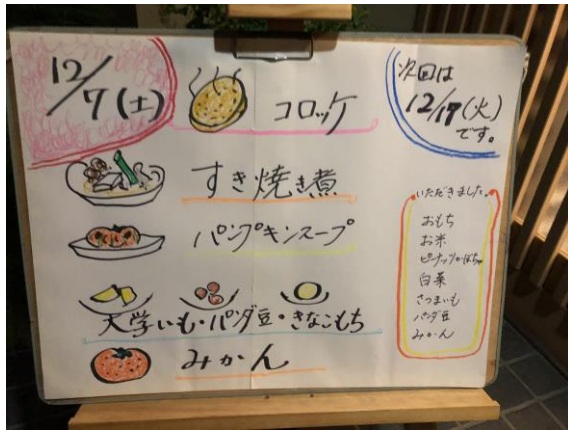 12/7(土)
コロッケ
次回は
12/17(火)
です。
すき焼き煮
パンプキンスープ
大学いも・パンダ豆・きなこもち
みかん
いただきました。
おもち
お米
ピーナッツかぼちゃ
白菜
さつまいも
パンダ豆
みかん